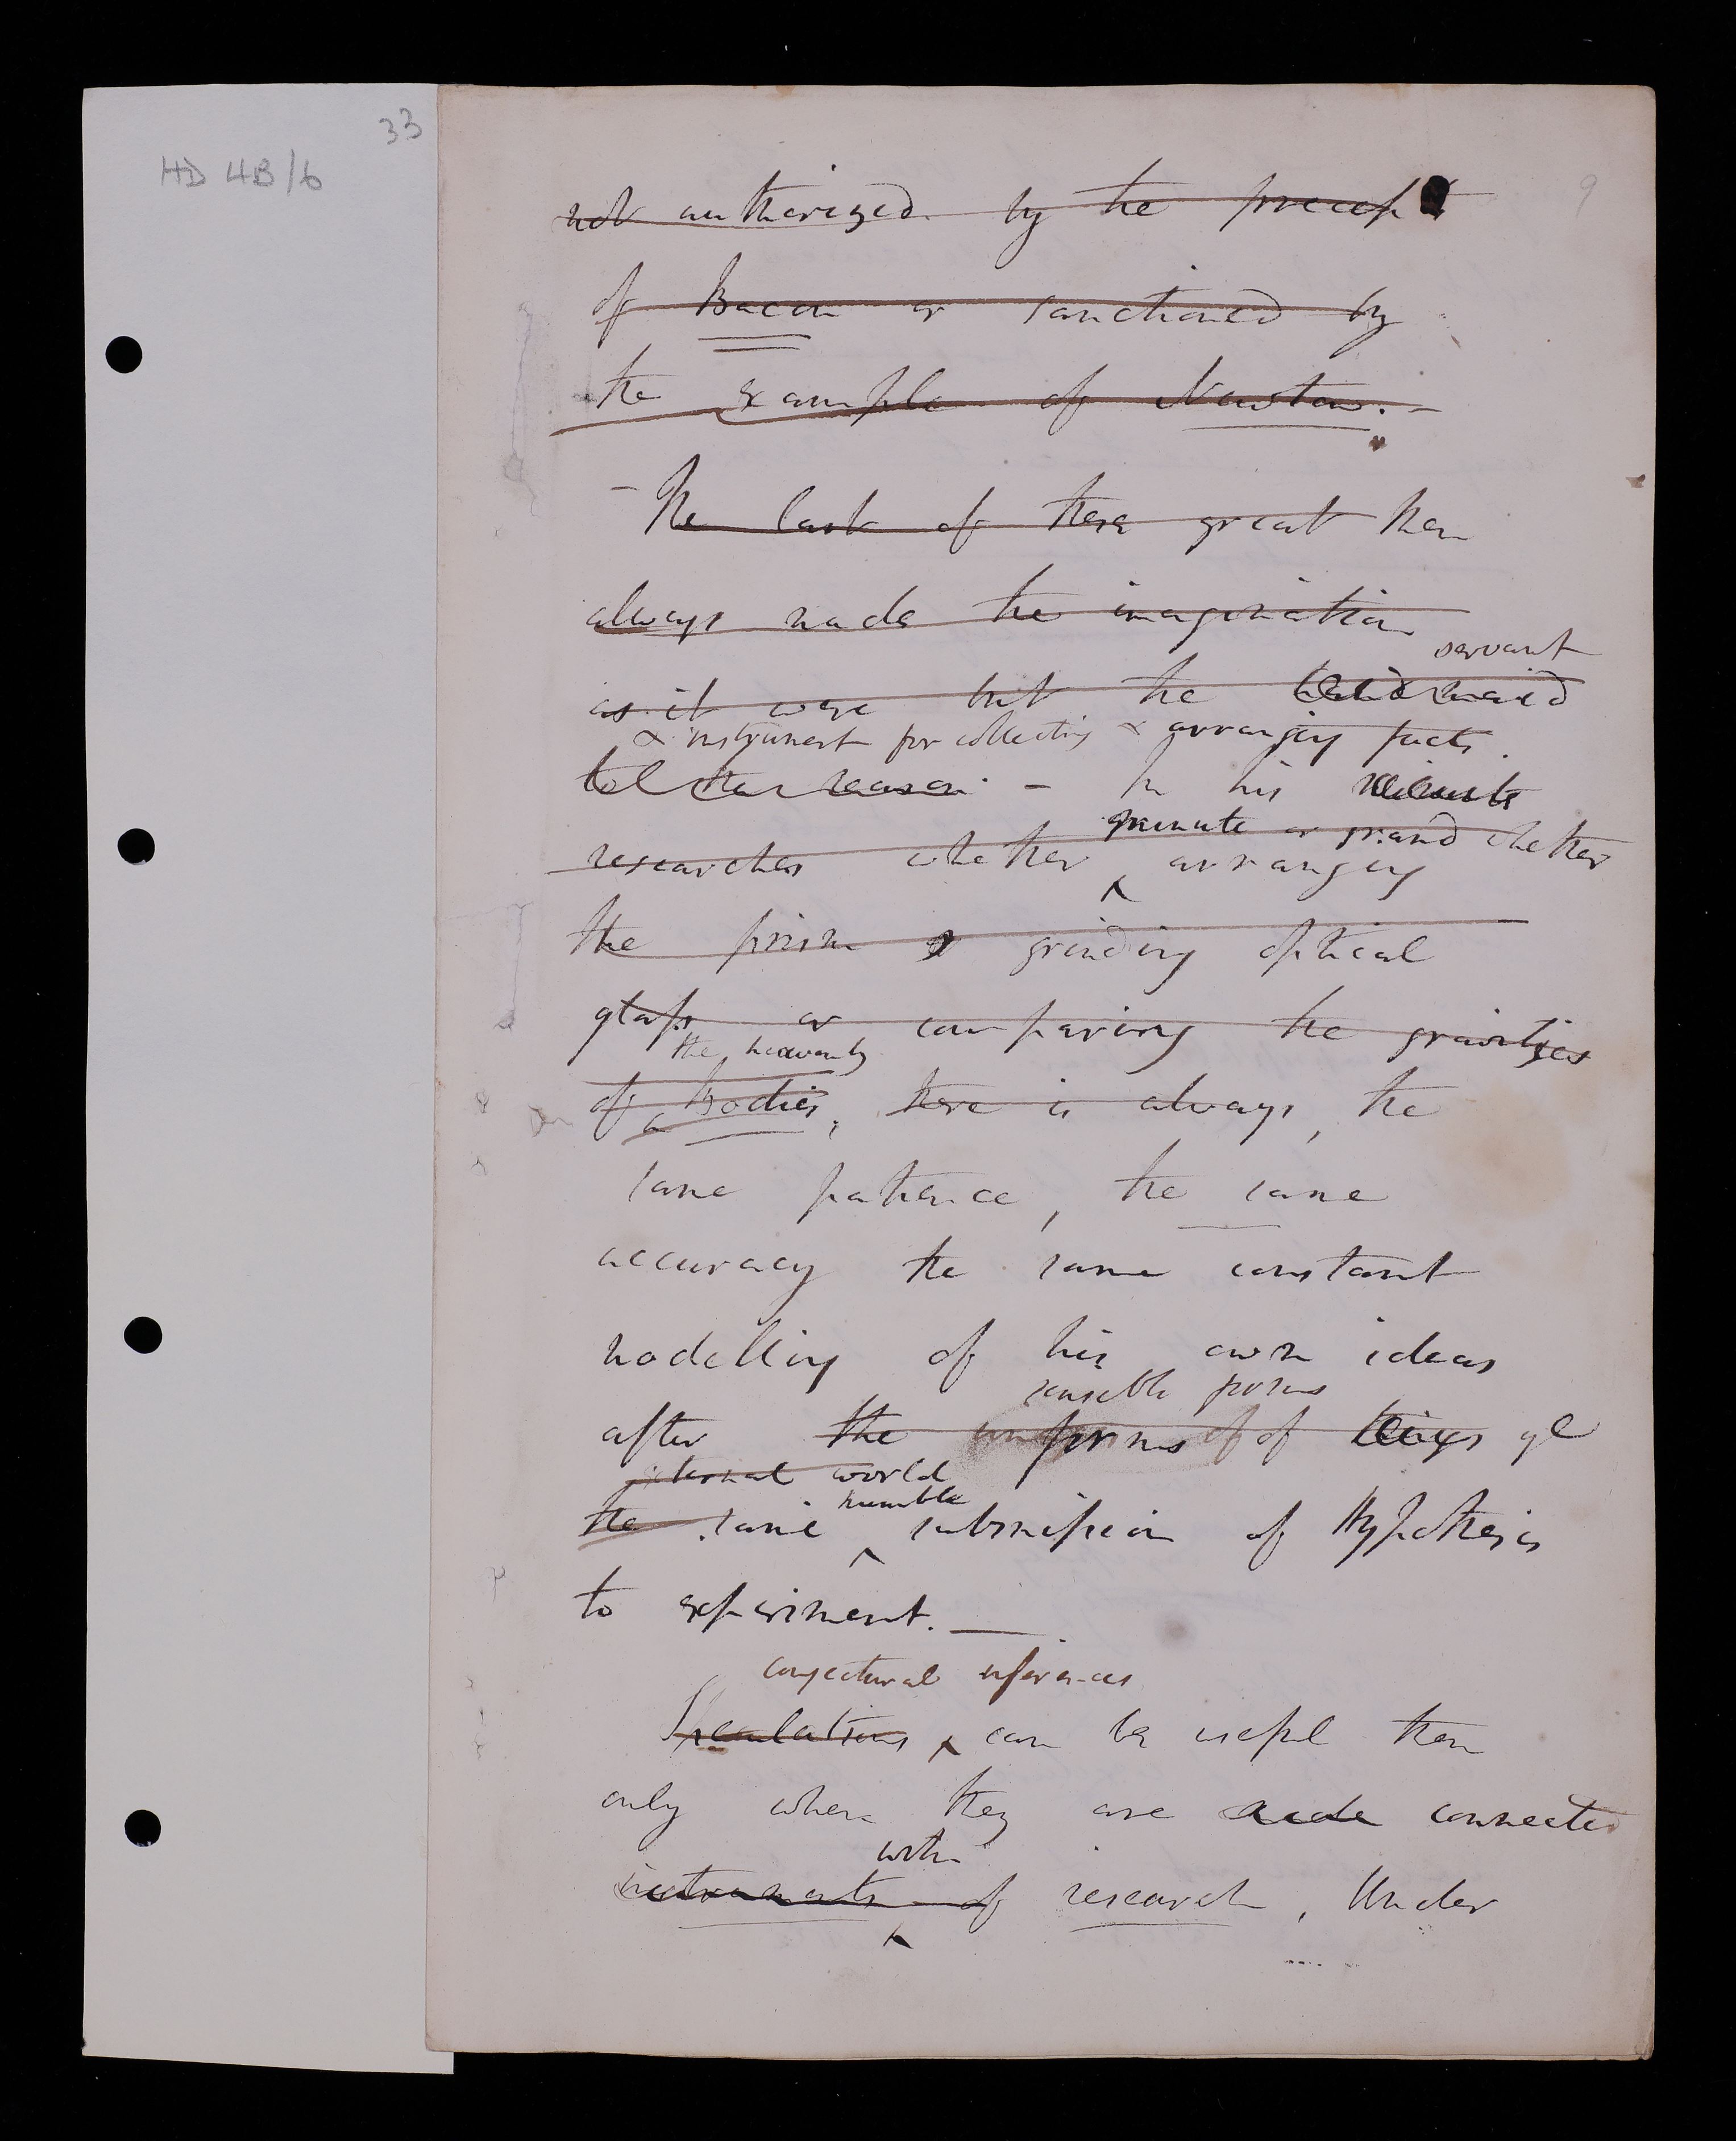 33
HD 4B/6
9
not authorized by the precept
of Bacon or sanctioned by
the example of Newton. -
- The last of these great Men
always made the imagination
servant
as it were but the handmaid
& instrument for collecting & arranging facts.
to reason - In his minute
minute or grand whether
researches whether arranging
the prism or grinding optical
glasses or comparing the gravities
the heavenly
of Bodies, there is always, the
same patience, the same
accuracy the same constant
modelling of his own ideas
sensible forms
after the forms of of things ye
external world
humble
the same submission of Hypothesis
to experiment. —
conjectural inferences
Speculations can be useful then
only where they are made connected
with
instruments of research, Under